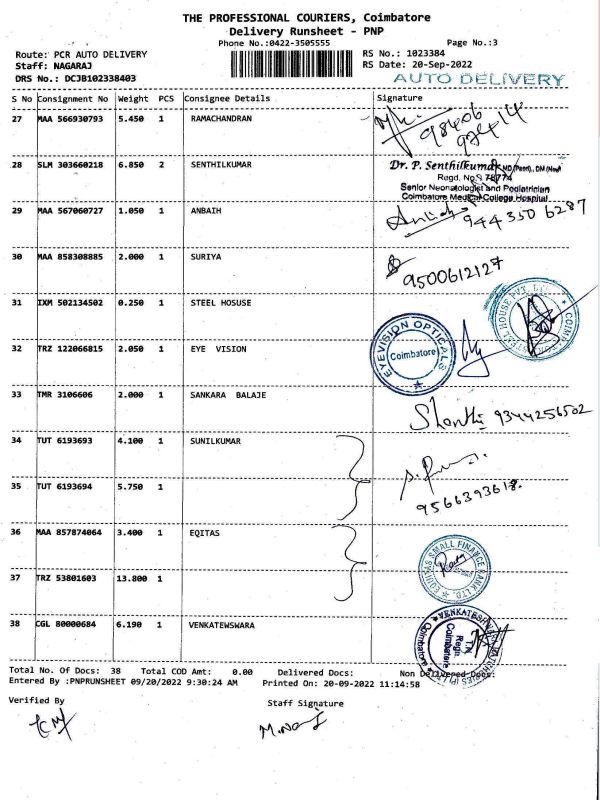 THE PROFESSIONAL COURIERS, Coimbatore
Delivery Runsheet - PNP
Phone No.:0422-3505555 Page No.:3
Route: PCR AUTO DELIVERY RS No.: 1023384
Staff: NAGARAJ RS Date: 20-Sep-2022
DRS No.: DCJB102338403 AUTO DELIVERY
S No Consignment No Weight PCS Consignee Details Signature
27 MAA 566930793 5.450 1 RAMACHANDRAN
98406
97414
28 SLM 303660218 6.850 2 SENTHILKUMAR Dr. P. Senthilkumar, MD (Paed)., DM (Neo)
Regd. No. 78774
Senior Neonatologist and Pediatrician
Coimbatore Medical College Hospital
29 MAA 567060727 1.050 1 ANBAIH 944350 6287
30 MAA 858308885 2.000 1 SURIYA 9500612127
31 IXM 502134502 0.250 1 STEEL HOSUSE STEEL HOUSE PVT. LTD. COIMBATORE
32 TRZ 122066815 2.050 1 EYE VISION EYEVISION OPTICALS Coimbatore
33 TMR 3106606 2.000 1 SANKARA BALAJE Shanthi 9344256502
34 TUT 6193693 4.100 1 SUNILKUMAR
35 TUT 6193694 5.750 1 9566393618.
36 MAA 857874064 3.400 1 EQITAS EQUITAS SMALL FINANCE BANK LTD.
37 TRZ 53801603 13.800 1
38 CGL 80000684 6.190 1 VENKATEWSWARA VENKATESHWARA HATCHERIES (P) LTD. Coimbatore
T.N.
Regn.
Coimbatore
Total No. Of Docs: 38 Total COD Amt: 0.00 Delivered Docs: Non Delivered Docs:
Entered By :PNPRUNSHEET 09/20/2022 9:30:24 AM Printed On: 20-09-2022 11:14:58
Verified By Staff Signature